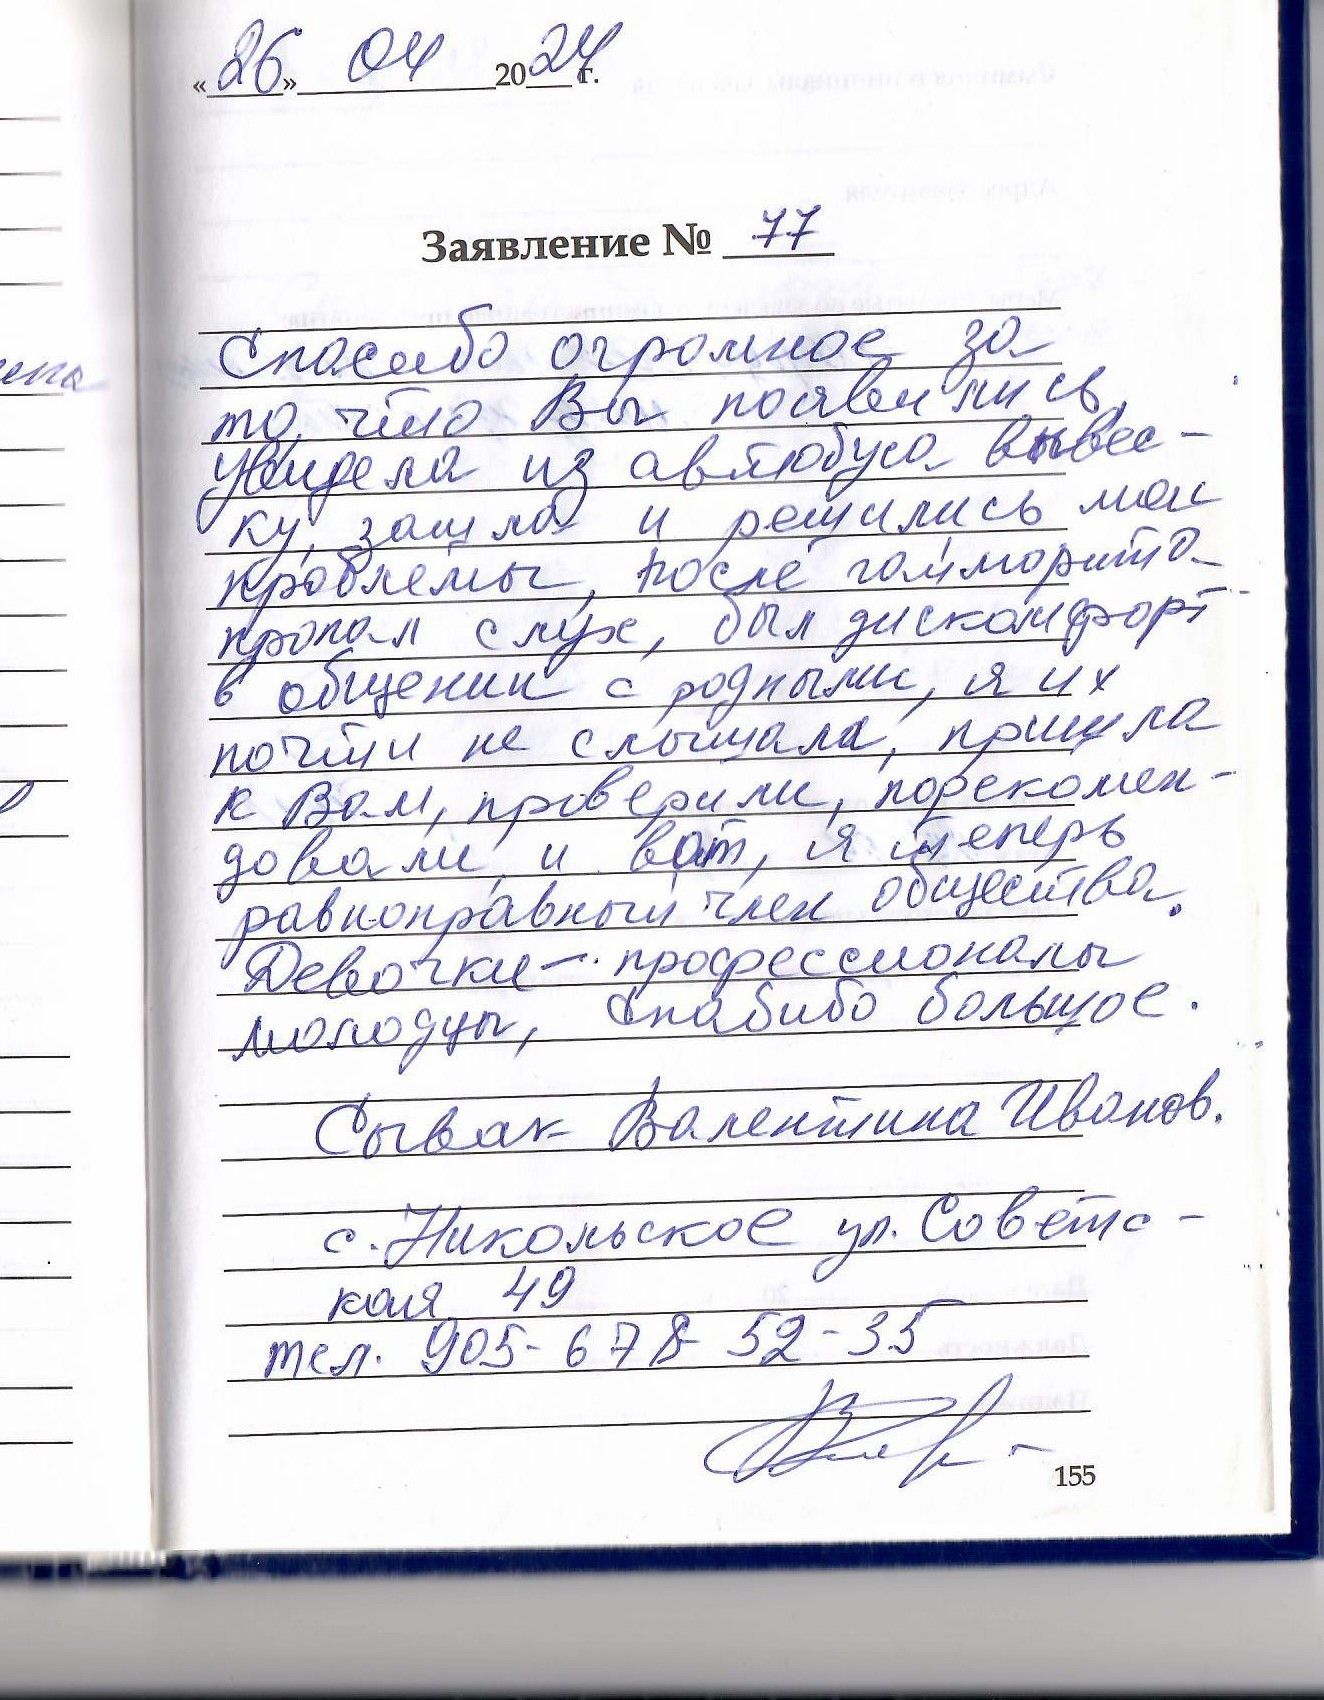 «26» 04 2024 г.
Заявление № 77
Спасибо огромное за
то, что Вы появились,
увидела из автобуса вывес-
ку, зашла и решились мои
проблемы, после гайморита
пропал слух, был дискомфорт
в общении с родными, я их
почти не слышала, пришла
к Вам, проверили, порекомен-
довали, и вот, я теперь
равноправный член общества.
Девочки - профессионалы
молодцы, спасибо большое.
Сывак Валентина Иванов.
с. Никольское ул. Советс-
кая 49
тел. 905-678-52-35
155